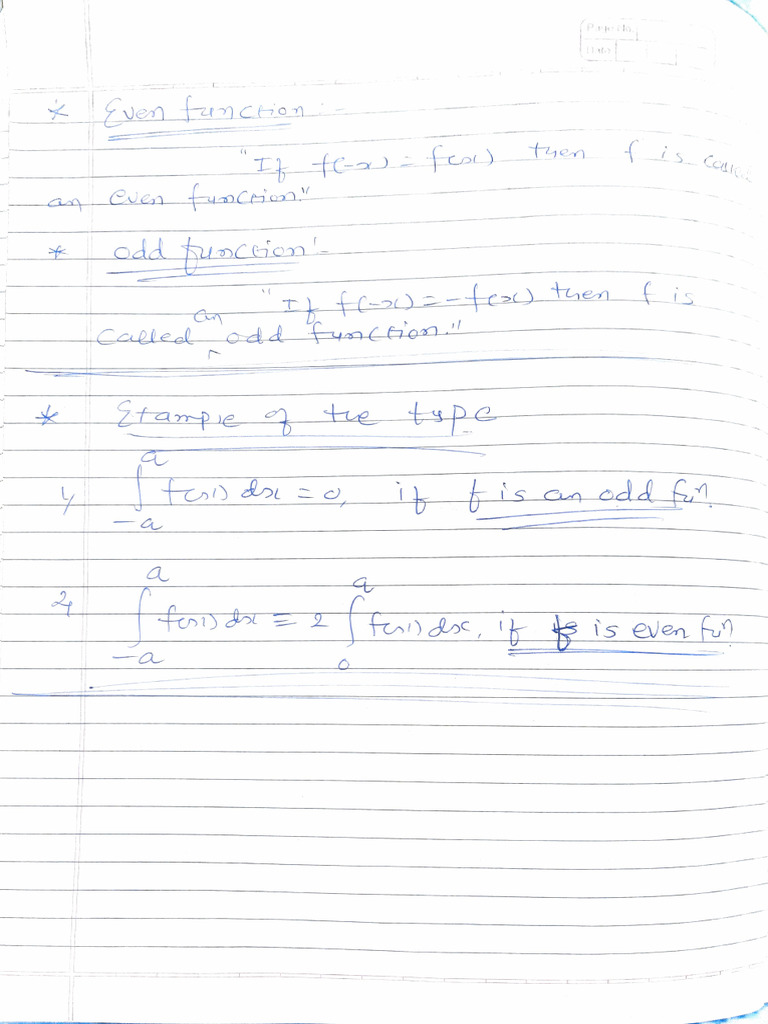 Page No.
Date
* Even function :-
"If f(-x) = f(x) then f is called
an even function."
* odd function :-
"If f(-x) = -f(x) then f is
called an odd function."
* Example of the type
1) ∫_{-a}^{a} f(x) dx = 0, if f is an odd fun
2) ∫_{-a}^{a} f(x) dx = 2 ∫_{0}^{a} f(x) dx, if f is even fun